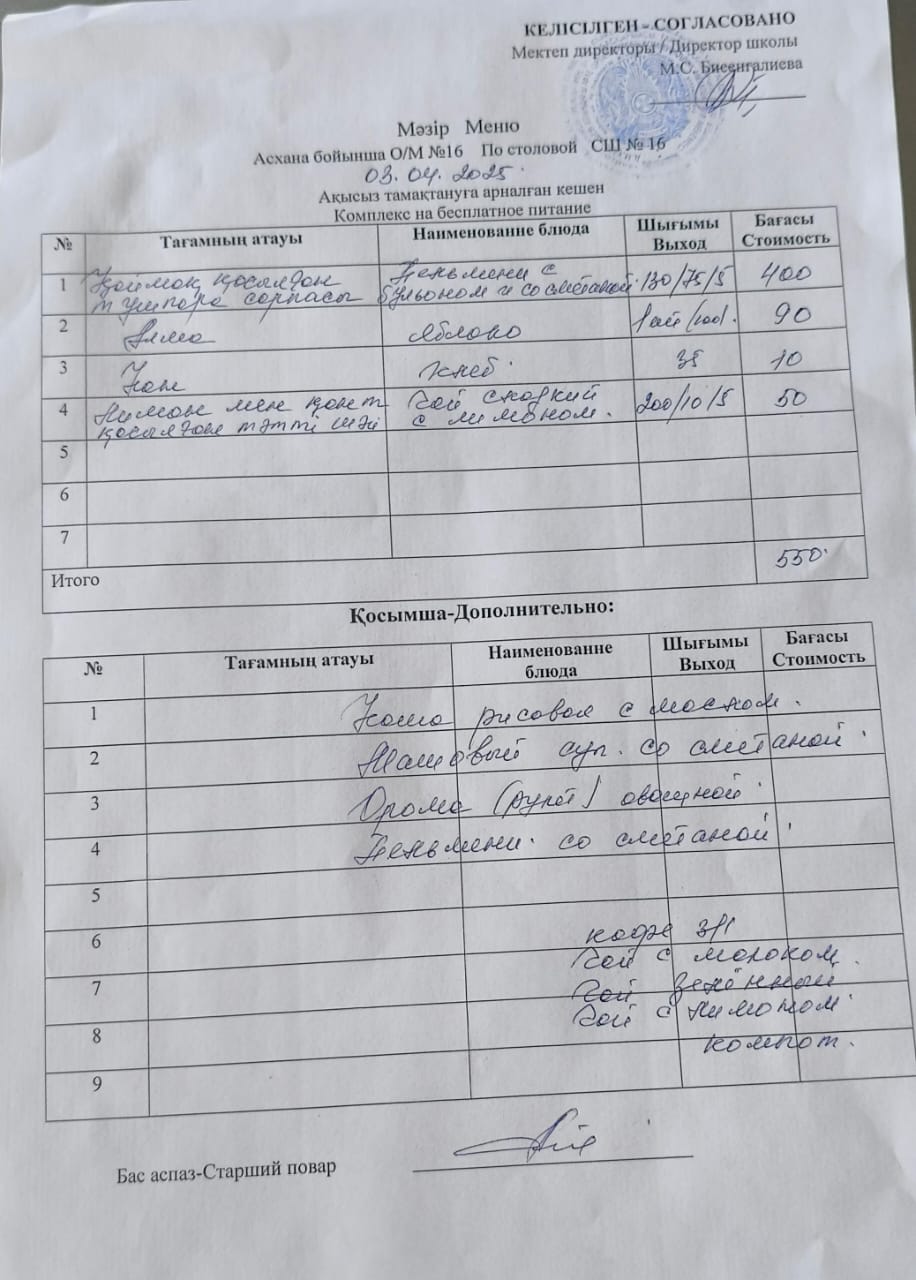 КЕЛІСІЛГЕН - СОГЛАСОВАНО
Мектеп директоры / Директор школы
М.С. Бисенгалиева
Мәзір Меню
Асхана бойынша О/М №16 По столовой СШ № 16
03.04.2025
Ақысыз тамақтануға арналған кешен
Комплекс на бесплатное питание
№ Тағамның атауы Наименование блюда Шығымы Выход Бағасы Стоимость
1 Қаймақ қосылған тұшпара сорпасы Пельмени с бульоном и со сметаной 130/75/5 400
2 Алма Яблоко 90
3 Нан Хлеб 35 10
4 Лимон мен қант қосылған тәтті шәй Чай сладкий с лимоном. 200/10/5 50
5
6
7
Итого 550
Қосымша-Дополнительно:
№ Тағамның атауы Наименование блюда Шығымы Выход Бағасы Стоимость
1 Каша рисовая с маслом.
2 Машовый суп. со сметаной
3 Орама (рулет) овощной
4 Пельмени со сметаной
5
6 кофе 3/1
чай с молоком.
7 чай зелённый
чай с лимоном
8 компот.
9
Бас аспаз-Старший повар